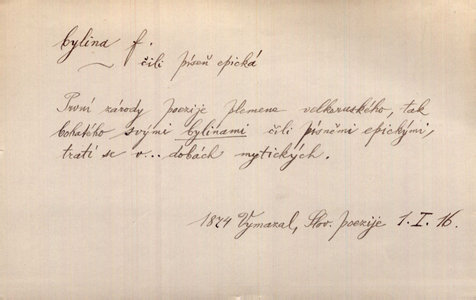 bylina f.
čili píseň epická
První zárody poezije plemena velkoruského, tak
bohatého svými bylinami čili písněmi epickými,
tratí se v... dobách mytických.
1874 Vymazal, Slov. poezije 1. I. 16.